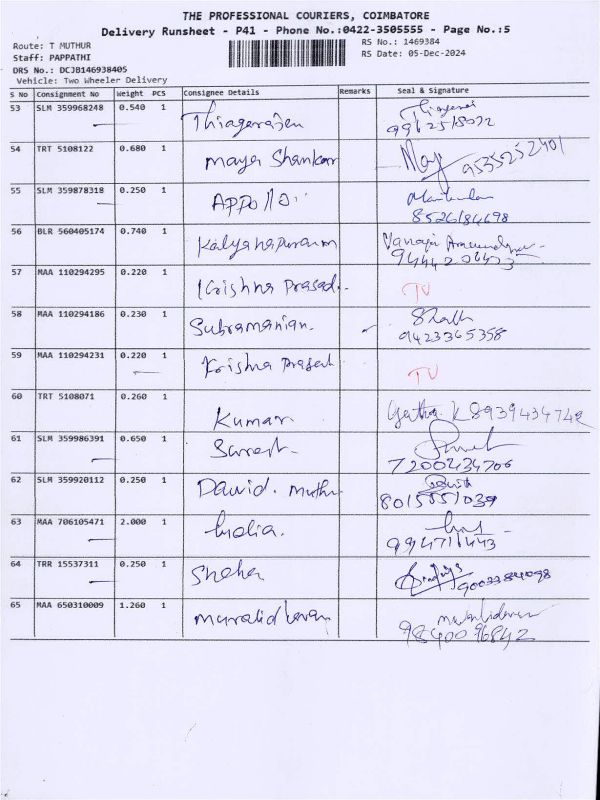 THE PROFESSIONAL COURIERS, COIMBATORE
Delivery Runsheet - P41 - Phone No.:0422-3505555 - Page No.:5
Route: T MUTHUR
RS No.: 1469384
Staff: PAPPATHI
RS Date: 05-Dec-2024
DRS No.: DCJB146938405
Vehicle: Two Wheeler Delivery
S No Consignment No Weight PCS Consignee Details Remarks Seal & Signature
53 SLM 359968248 0.540 1 Thiagarajen
54 TRT 5108122 0.680 1 Maya Shankar 9535252401
55 SLM 359878318 0.250 1 APPollo
8526184698
56 BLR 560405174 0.740 1 Kalyanapuram
57 MAA 110294295 0.220 1 Krishna Prasad. TU
58 MAA 110294186 0.230 1 Subramanian.
9423365358
59 MAA 110294231 0.220 1 Krishna Prasad TU
60 TRT 5108071 0.260 1 Kumar K 8939434742
61 SLM 359986391 0.650 1 Suresh
7200434706
62 SLM 359920112 0.250 1 David. Muthu
8015551039
63 MAA 706105471 2.000 1 India.
9994716443
64 TRR 15537311 0.250 1 Sneha
65 MAA 650310009 1.260 1 Muralidharan
9840096842